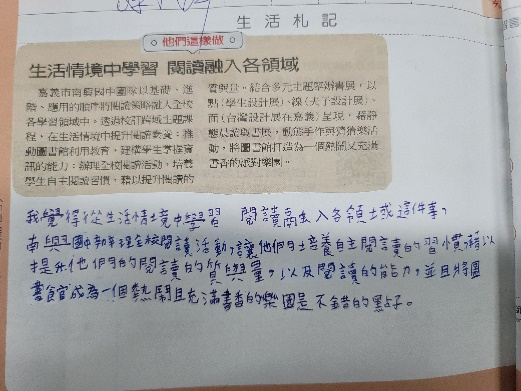 生活札記
他們這樣做
生活情境中學習 閱讀融入各領域
嘉義市南興國中團隊以基礎、進
階、應用的順序將閱讀策略融入全校
各學習領域中。透過校引跨域主題課
程，在生活情境中提升閱讀素養；推
動圖書館利用教育，建構學生掌握資
訊的能力；辦理全校閱讀活動，培養
學生自主閱讀習慣，藉以提升閱讀的
質與量。結合多元主題策辦書展，以
點（學生設計展）、線（夫子設計展）、
面（台灣設計展在嘉義）呈現，藉靜
態晨讀與書展，動態手作與濟濟樂活
動，將圖書館打造為一個熱鬧又充滿
書香的派對樂園。
我覺得從生活情境中學習 閱讀融入各領域這件事，
南興國中辦理全校閱讀活動，讓他們培養自主閱讀的習慣，種以
提升他們的閱讀的質與量，以及閱讀的能力，並且將圖
書館成為一個熱鬧且充滿書香的樂園是不錯的點子。